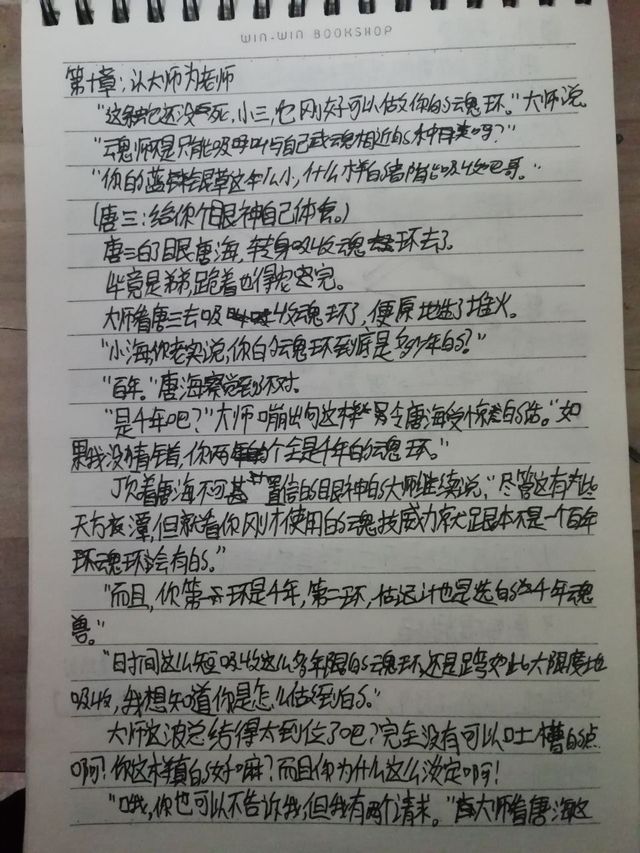 WIN-WIN BOOKSHOP
第十章：认大师为老师
"这条蛇还没死，小三，它刚好可以做你的魂环。"大师说。
"魂师不是只能吸呼叫与自己武魂相近的种类吗？"
"你的蓝银草这么小，什么样的猪陷能吸收吧哥。"
（唐三：给你个眼神自己体会。）
唐三白了眼唐海，转身吸收魂环去了。
毕竟是弟弟，跪着也得宠完。
大师看唐三去吸收魂环了，便原地生了堆火。
"小海，你老实说，你的魂环到底是多少年的？"
"百年。"唐海察觉到不对。
"是千年吧？"大师嘣出句这样令唐海受惊的话。"如
果我没有猜错，你两个全是千年的魂环。"
顶着唐海不可置信的眼神的大师继续说，"尽管这有些
天方夜谭，但就看你刚才使用的魂技威力就大跟本不是一个百年
魂环会有的。"
"而且，你第一环是千年，第二环，估计也是选的千年魂
兽。"
"时间这么短吸收这么多年限的魂环还是跨如此大限度地
吸收，我想知道你是怎么做到的。"
大师这波总结得太到位了吧？完全没有可以吐槽的点
啊！你这样真的好嘛？而且你为什么这么淡定啊！
"哦，你也可以不告诉我，但我有两个请求。"大师看唐海这